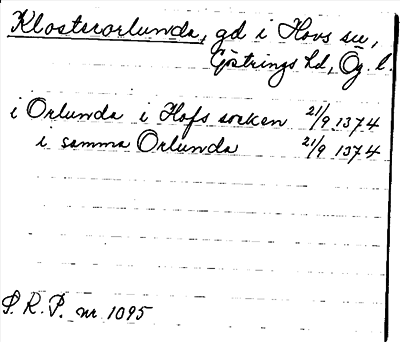 Klosterorlunda, gd i Hovs sn,
Göstrings hd, Ög. l.
i Orlunda i Hofs socken 21/9 1374
i samma Orlunda 21/9 1374
S. R. P. nr 1095